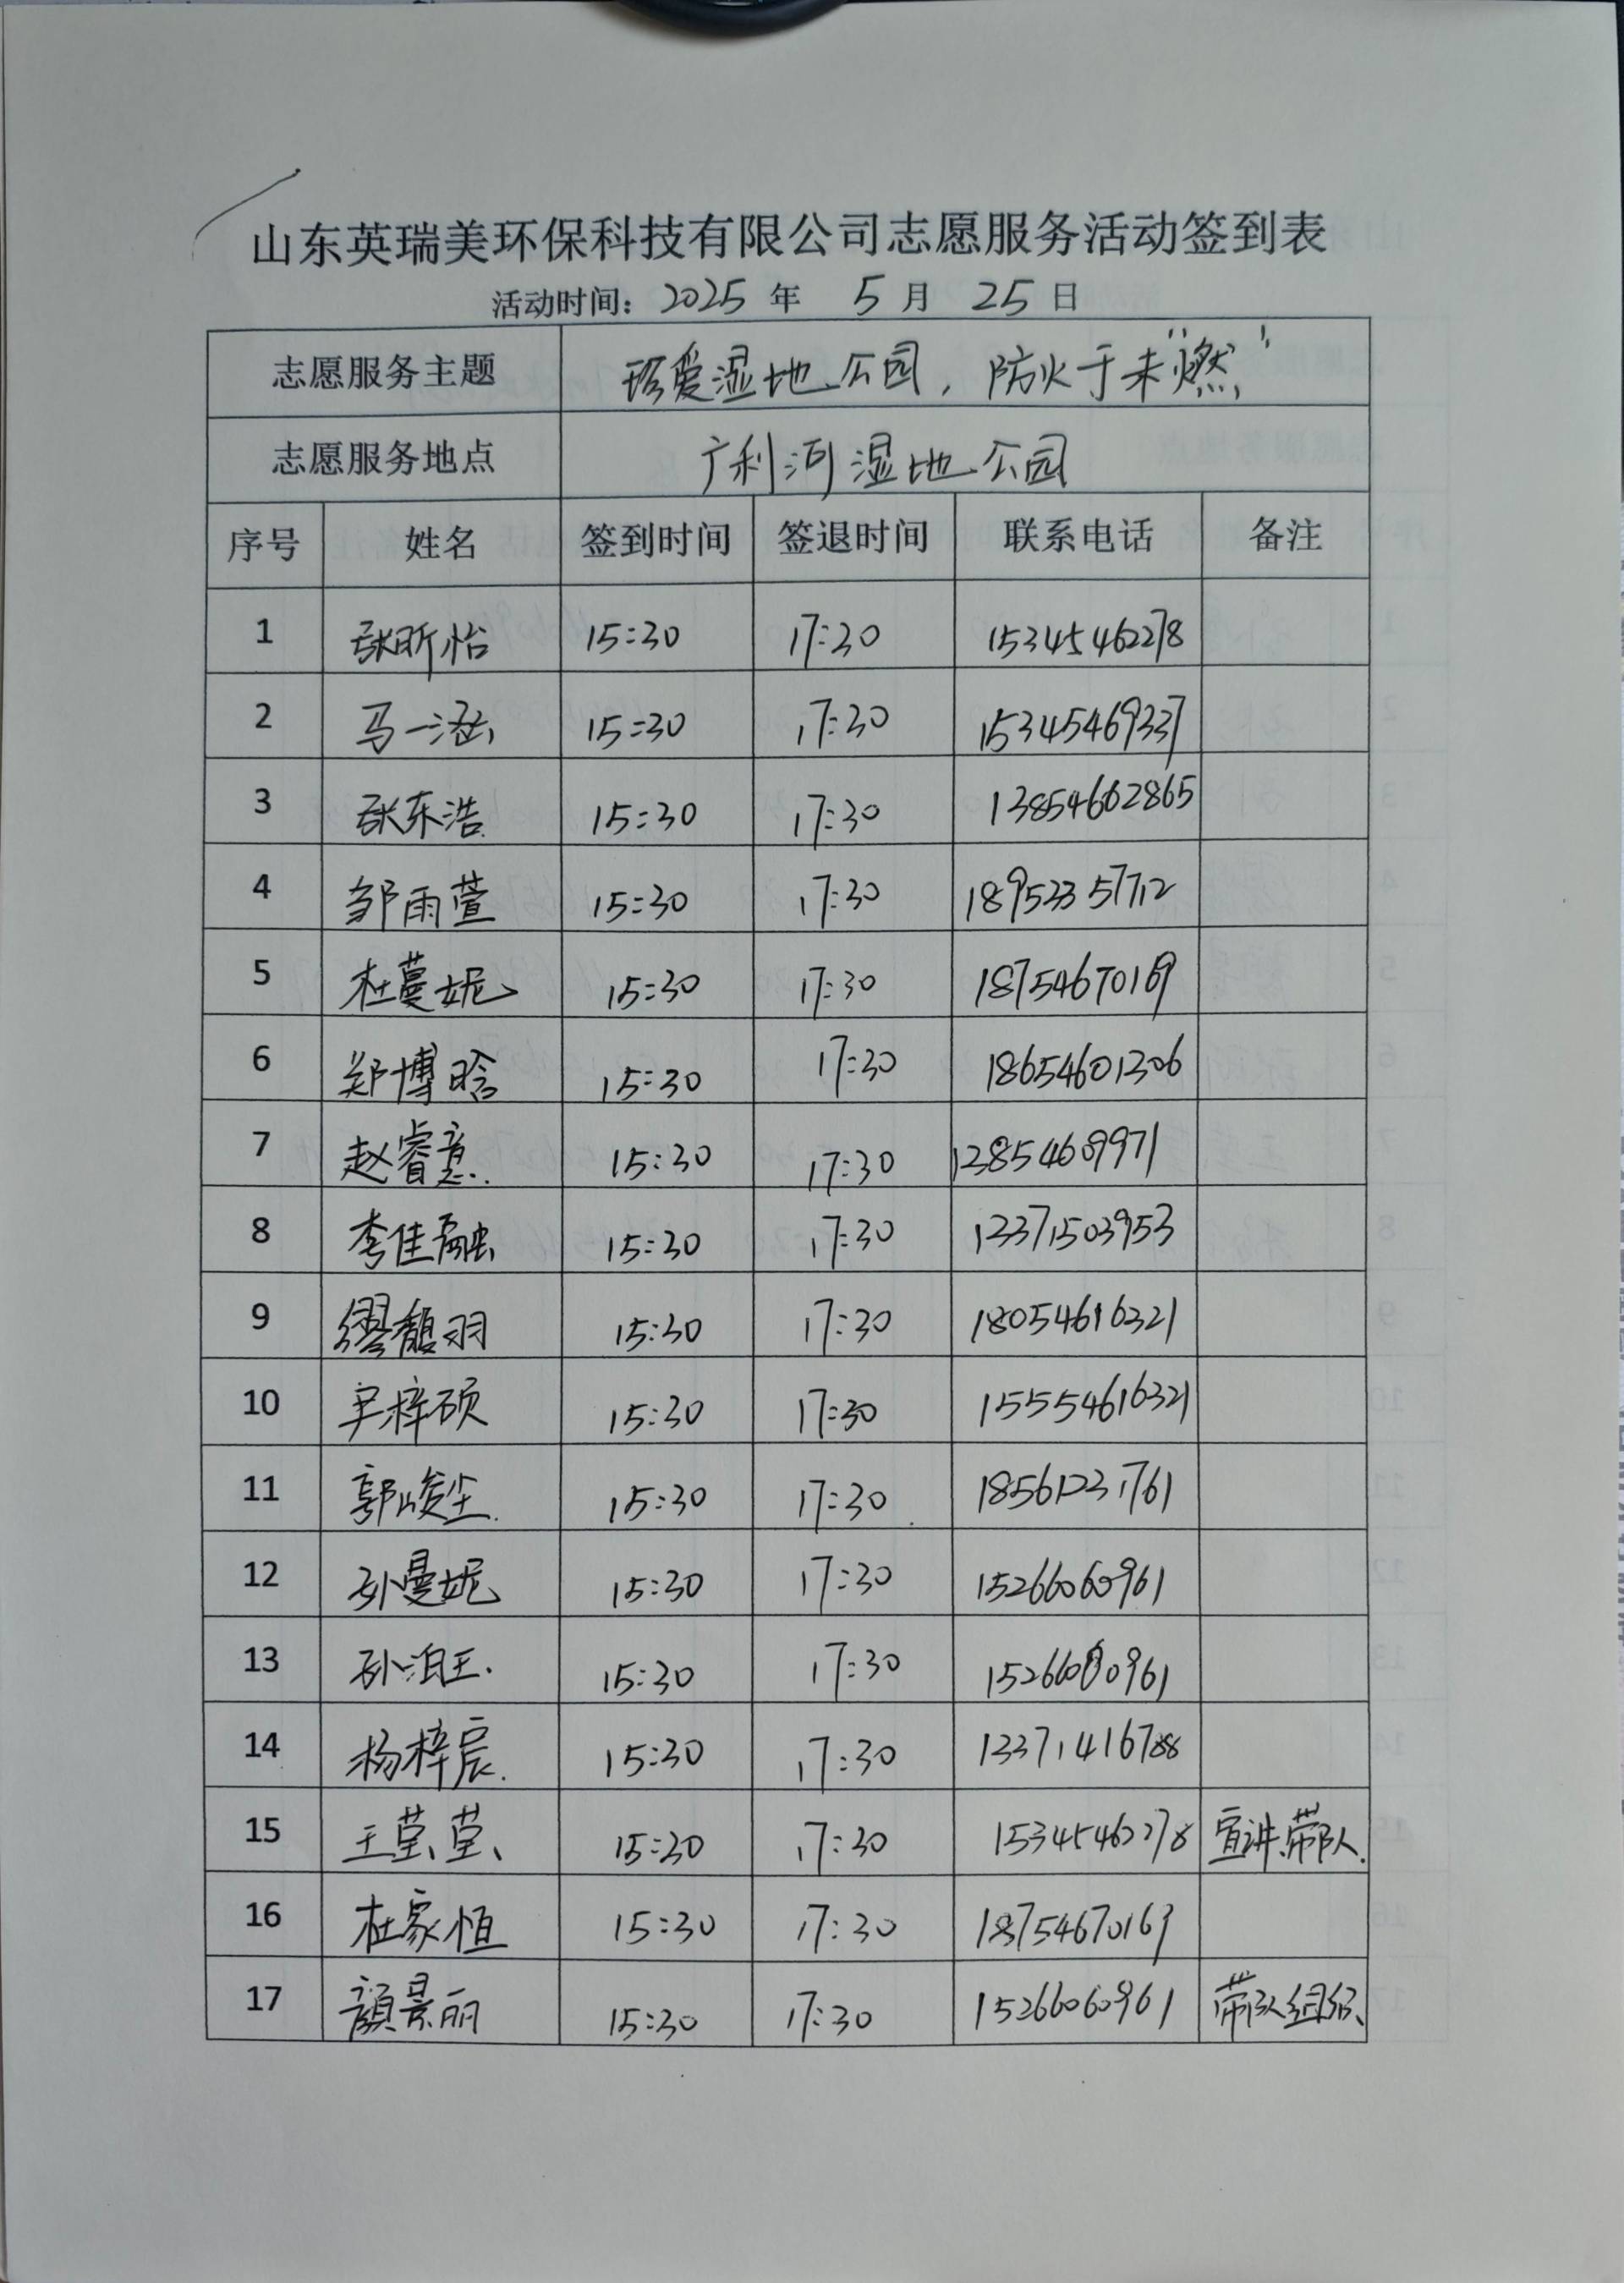 山东英瑞美环保科技有限公司志愿服务活动签到表
活动时间：2025 年 5 月 25 日
志愿服务主题 珍爱湿地公园，防火于未“燃”
志愿服务地点 广利河湿地公园
序号 姓名 签到时间 签退时间 联系电话 备注
1 张昕怡 15:30 17:30 15345462278
2 马一涵 15:30 17:30 15345469337
3 张东浩 15:30 17:30 13854662865
4 邹雨萱 15:30 17:30 18953357712
5 杜蔓妮 15:30 17:30 18754670169
6 郑博晗 15:30 17:30 18654601306
7 赵睿意 15:30 17:30 13854609971
8 李佳融 15:30 17:30 13371503953
9 缪馥羽 15:30 17:30 18054616321
10 尹梓硕 15:30 17:30 15554616321
11 郭峻尘 15:30 17:30 18561231761
12 孙曼妮 15:30 17:30 15266060961
13 15:30 17:30 15266060961
14 杨梓辰 15:30 17:30 13371416788
15 王莹莹 15:30 17:30 15345462278 宣讲、带队
16 杜家恒 15:30 17:30 18754670169
17 颜景丽 15:30 17:30 15266060961 带队组织